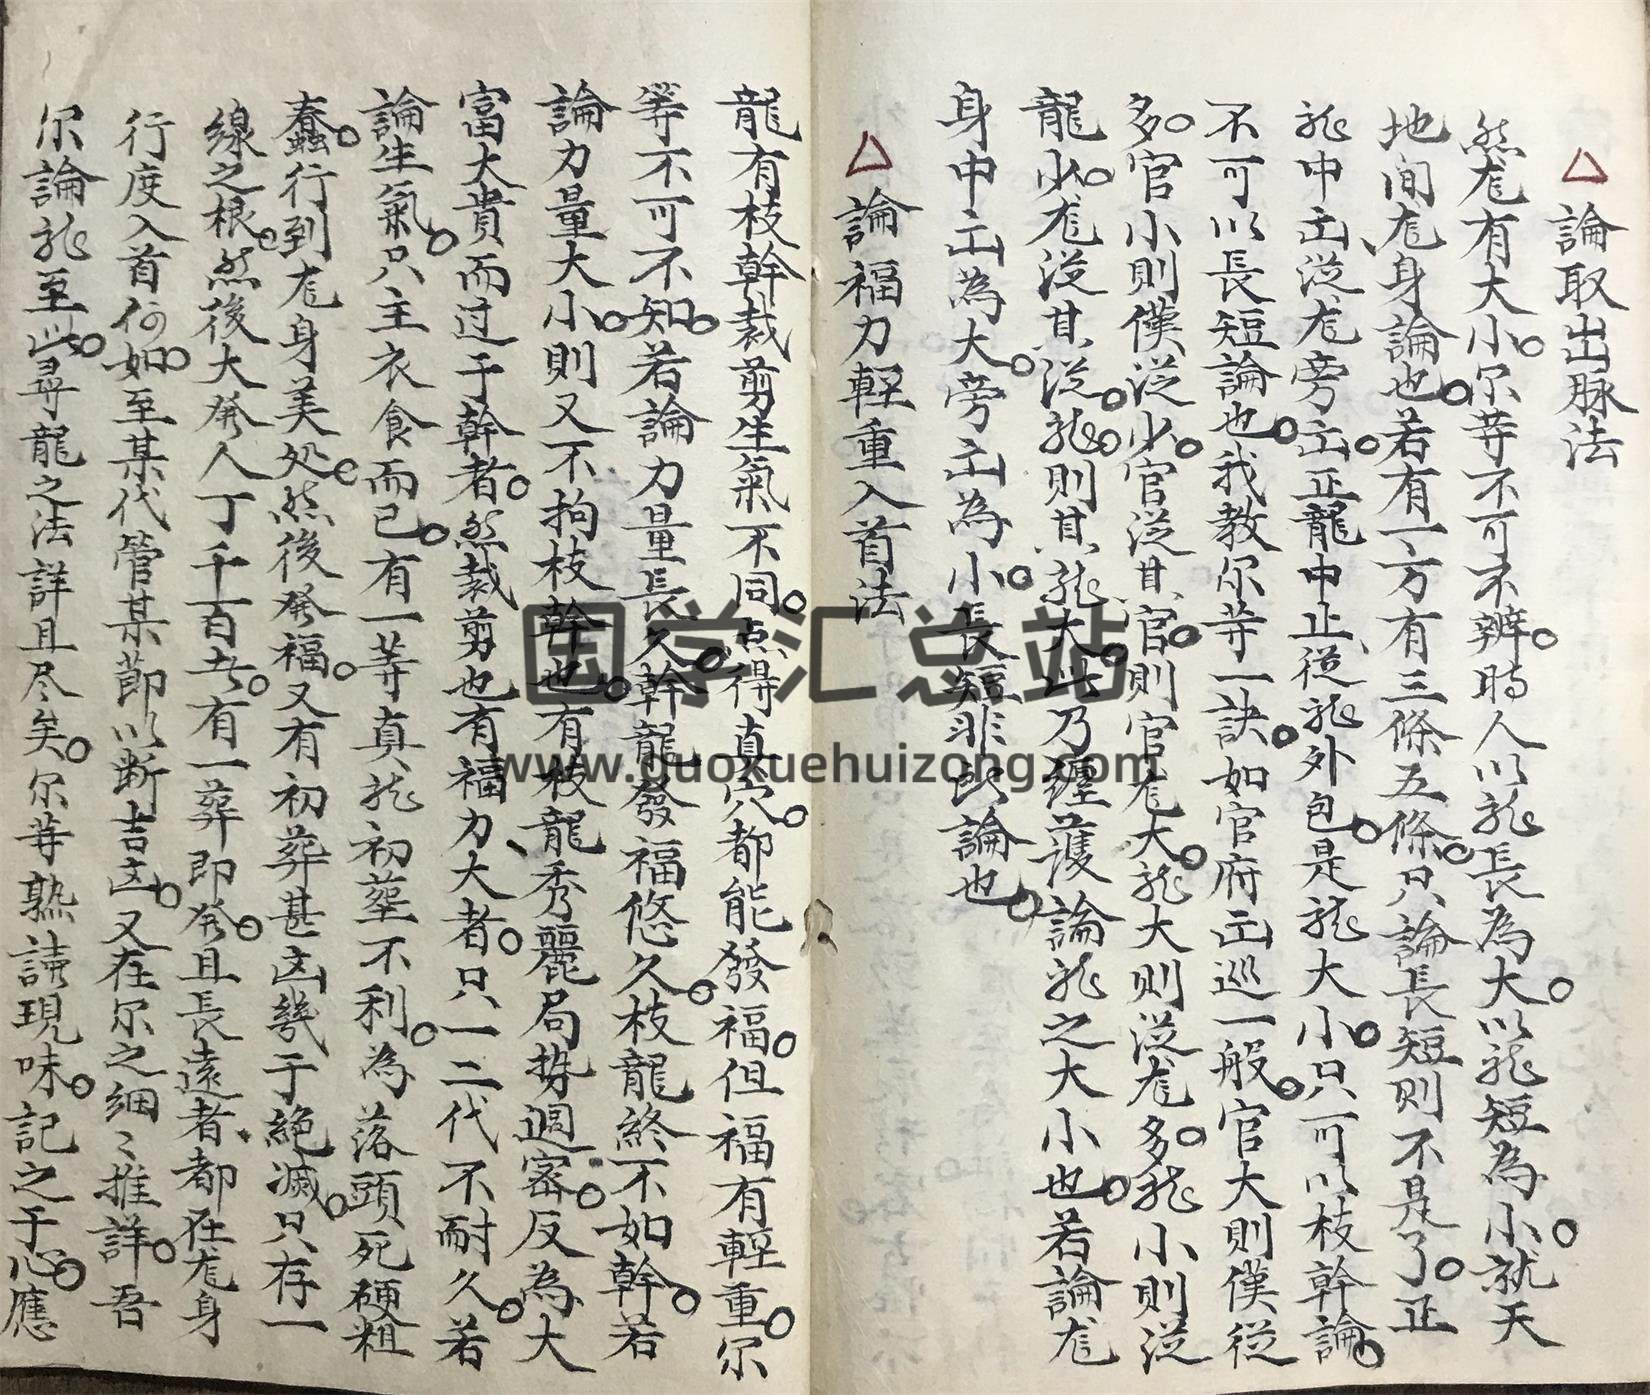 △論取出脉法
然龙有大小尔等不可不辨時人以龍長為大以龍短為小就天
地间龙身論也若有一方有三條五條只論長短則不是了正
龍中出從龙旁出正龍中止從龍外包是龍大小只可以枝幹論
不可以長短論也我教尔等一訣如官府出巡一般官大則僕從
多官小則僕從少官從其官則官龙大龍大則從龙多龍小則從
龍少龙從其從龍則其龍大此乃纏護論龍之大小也若論龙
身中出為大旁出為小長短非此論也
△論福力軽重入首法
龍有枝幹裁剪生氣不同点得真穴都能發福但福有輕重尔
等不可不知若論力量長久幹龍發福悠久枝龍終不如幹若
論力量大小則又不拘枝幹也有枝龍秀麗局势週密反為大
富大貴而过于幹者然裁剪也有福力大者只一二代不耐久若
論生氣只主衣食而已有一等真龍初塟不利為落頭死硬粗
蠢行到龙身美处然後発福又有初葬甚凶幾于絕滅只存一
線之根然後大発人丁千百有一葬即発且長遠者都在龙身
行度入首何如至某代管某節以断吉凶又在尔之細〻推詳吾
尔論龍至此尋龍之法詳且尽矣尔等熟讀現味記之于心應
国学汇总站
www.guoxuehuizong.com